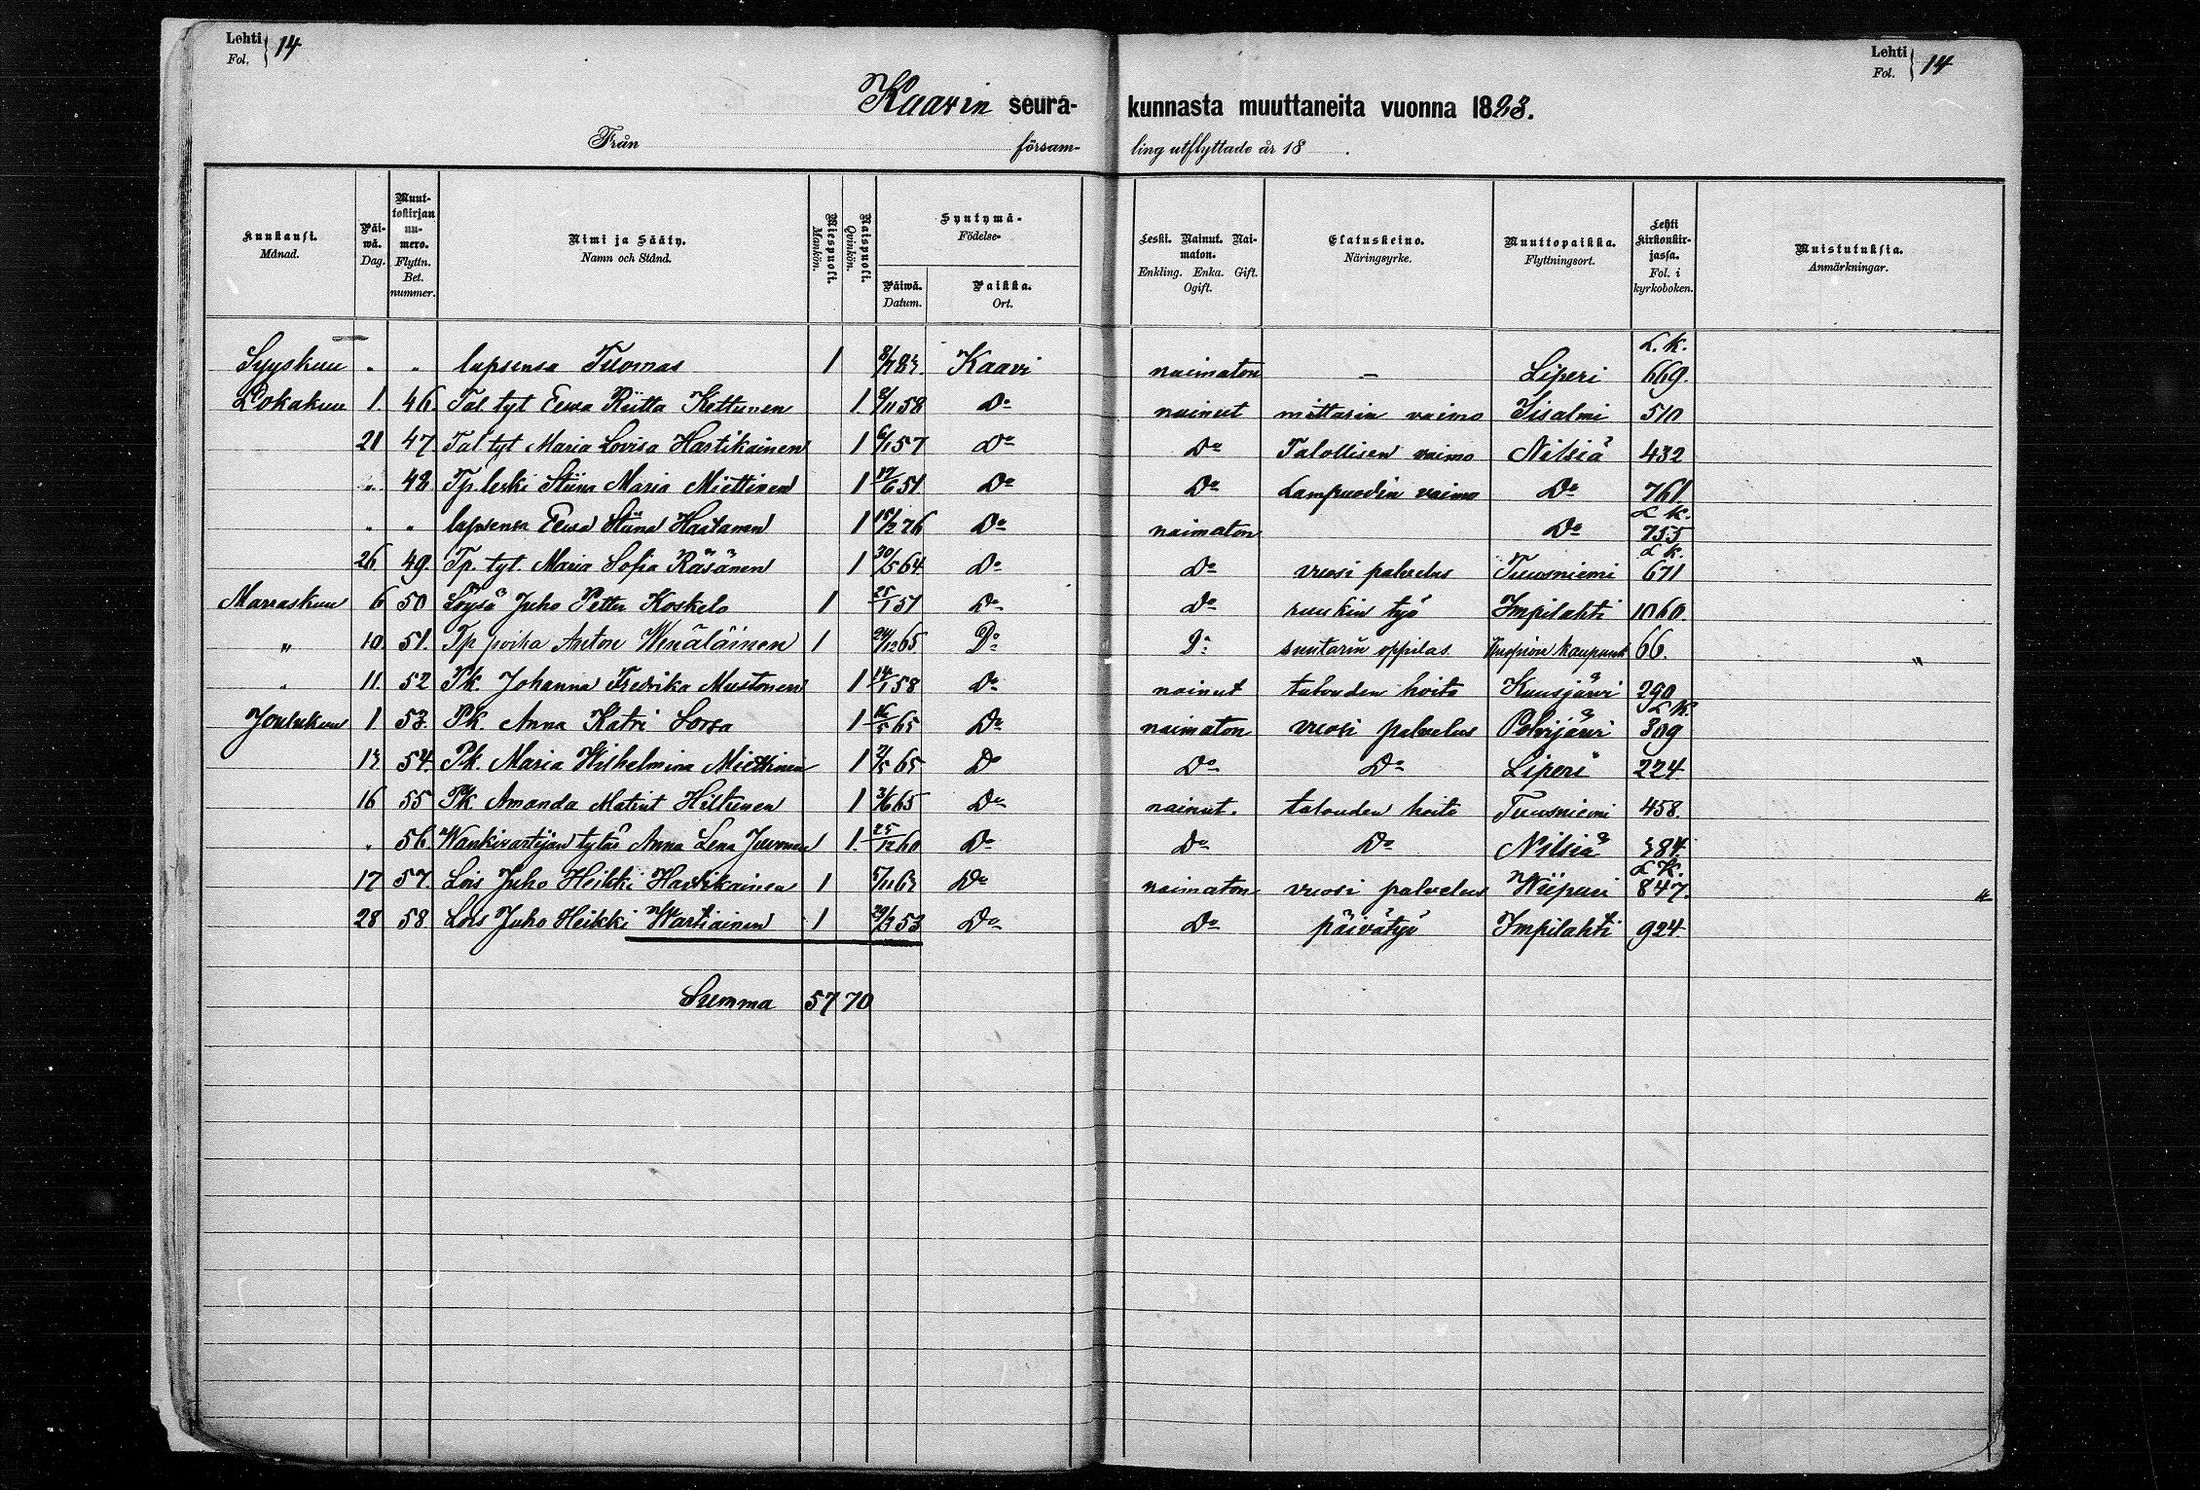 Lehti Fol. } 14
Lehti Fol. } 14
Kaavin seura- kunnasta muuttaneita vuonna 1883.
Från församling utflyttade år 18 .
Kuukausi. Månad. | Päiwä. Dag. | Muuttokirjan numero. Flyttn. Bet. nummer. | Nimi ja Sääty. Namn och Stånd. | Miespuoli. Mankön. | Naispuoli. Qvinkön. | Syntymä- Födelse- Päiwä. Datum. | Paikka. Ort. | Leski. Nainut. Naimaton. Enkling. Enka. Gift. Ogift. | Elatuskeino. Näringsyrke. | Muuttopaikka. Flyttningsort. | Lehti kirkonkirjassa. Fol. i kyrkoboken. | Muistutuksia. Anmärkningar.
Syyskuu " " lapsensa Tuomas 1 Kaavi naimaton – Liperi L.K. 669.
Lokakuu 1. 46. Tal. tyt Eewa Riitta Kettunen 1 6/11 58 Do nainut mittarin vaimo Iisalmi 510
21 47. Tal tyt Maria Lovisa Hartikainen 1 6/1 57 Do Do Talollisen vaimo Nilsiä 432
" 48. Tp. leski Stiina Maria Miettinen 1 17/6 51 Do Do Lampuodin vaimo Do 761.
" " lapsensa Eewa Stiina Hartanen 1 15/12 76 Do naimaton Do L.K. 755
26 49. Tp. tyt. Maria Sofia Räsänen 1 30/5 64 Do Do vuosi palvelus Tuusniemi L.K. 671
Marraskuu 6 50 Löysä Juho Petter Koskelo 1 25/1 51 Do Do ruukin työ Impilahti 1060.
" 10. 51. Tp poika Anton Wenäläinen 1 24/12 65 Do Do suutarin oppilas Kuopion kaupunk 66. "
" 11. 52 Pk. Johanna Fredrika Mustonen 1 14/1 58 Do nainut talouden hoito Kuusjärvi 290
Joulukuu 1 53. Pk. Anna Katri Sorsa 1 16/5 65 Do naimaton vuosi palvelus Polvijärvi L.K. 309
13 54. Pk. Maria Wilhelmina Miettinen 1 2/5 65 Do Do Do Liperi 224
16 55 Pk Amanda Matint Hiltunen 1 3/6 65 Do nainut. talouden hoito Tuusniemi 458.
" 56 Wankivartijan tytär Anna Lena Juvonen 1 1. 25/12 60 Do Do Do Nilsiä 384.
17 57. Lois Juho Heikki Hartikainen 1 5/11 63 Do naimaton vuosi palvelus Wiipuri L.K. 847. "
28 58. Lois Juho Heikki Wartiainen 1 53 Do Do päivätyö Impilahti 924
Summa 57 70